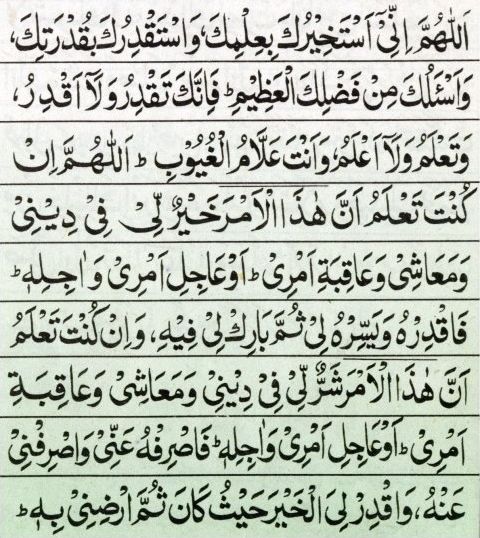 اَللّٰهُمَّ اِنِّیْۤ اَسْتَخِیْرُكَ بِعِلْمِكَ، وَاسْتَقْدِرُكَ بِقُدْرَتِكَ،
وَاَسْئَلُكَ مِنْ فَضْلِكَ الْعَظِیْمِ ؕ فَاِنَّكَ تَقْدِرُ وَلَاۤ اَقْدِرُ،
وَتَعْلَمُ وَلَاۤ اَعْلَمُ، وَاَنْتَ عَلَّامُ الْغُیُوْبِ ؕ اَللّٰهُمَّ اِنْ
كُنْتَ تَعْلَمُ اَنَّ هٰذَا الْاَمْرَ خَیْرٌ لِّیْ فِیْ دِیْنِیْ
وَمَعَاشِیْ وَعَاقِبَةِ اَمْرِیْ ؕ اَوْ عَاجِلِ اَمْرِیْ وَاٰجِلِهٖ ؕ
فَاقْدِرْهُ وَیَسِّرْهُ لِیْ ثُمَّ بَارِكْ لِیْ فِیْهِ، وَاِنْ كُنْتَ تَعْلَمُ
اَنَّ هٰذَا الْاَمْرَ شَرٌّ لِّیْ فِیْ دِیْنِیْ وَمَعَاشِیْ وَعَاقِبَةِ
اَمْرِیْ ؕ اَوْ عَاجِلِ اَمْرِیْ وَاٰجِلِهٖ ؕ فَاصْرِفْهُ عَنِّیْ وَاصْرِفْنِیْ
عَنْهُ، وَاقْدِرْ لِیَ الْخَیْرَ حَیْثُ كَانَ ثُمَّ ارْضِنِیْ بِهٖ ؕ